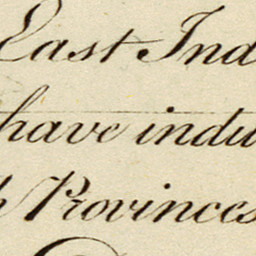 East Ind
have indu
h Provinces